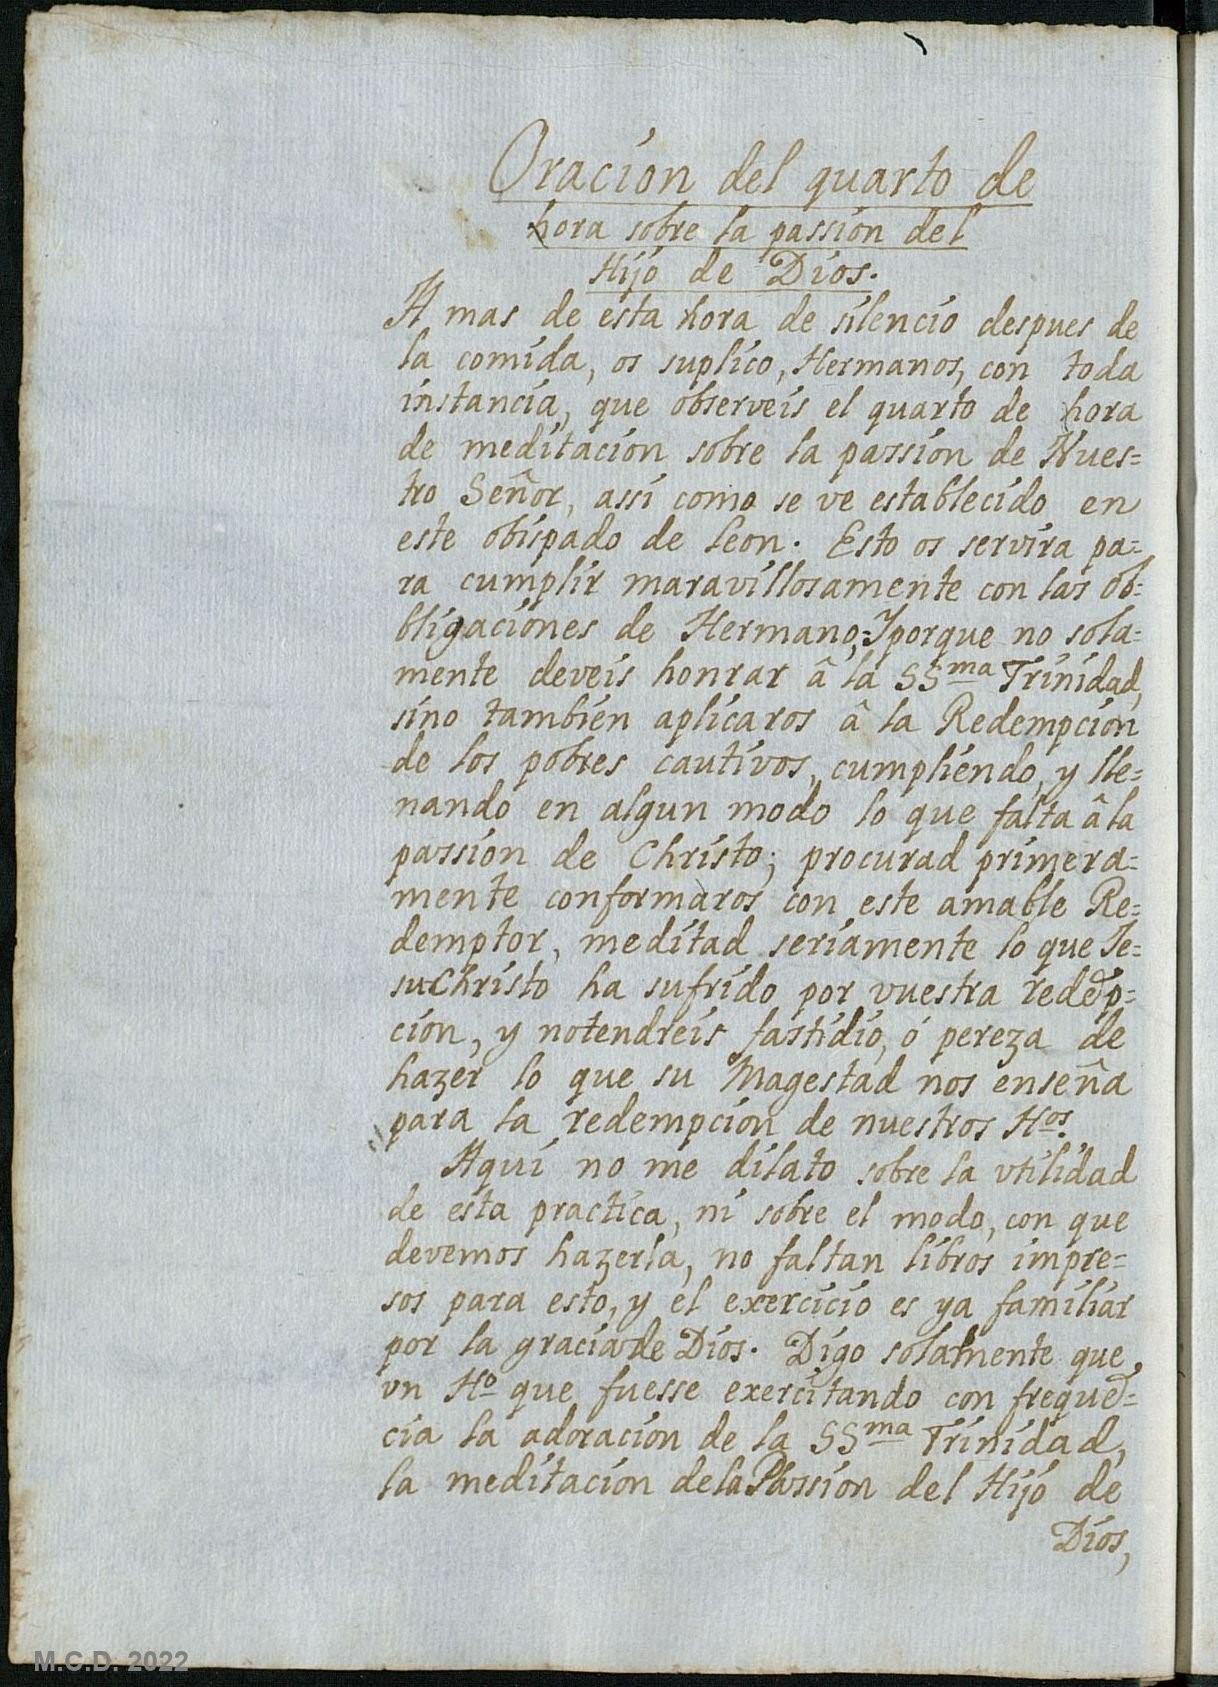 Oracion del quarto de
hora sobre la passion del
Hijo de Dios.
A mas de esta hora de silencio despues de
la comida, os suplico, Hermanos, con toda
instancia, que observeis el quarto de hora
de meditacion sobre la passion de Nues=
tro Señor, assi como se ve establecido en
este obispado de leon. Esto os servira pa=
ra cumplir maravillosamente con las ob=
bligaciones de Hermano, porque no sola=
mente deveis honrar â la SSma Trinidad,
sino tambien aplicaros â la Redempcion
de los pobres cautivos, cumpliendo, y lle=
nando en algun modo lo que falta â la
passion de Christo; procurad primera=
mente conformaros con este amable Re=
demptor, meditad seriamente lo que Je=
suChristo ha sufrido por vuestra redẽp=
cion, y notendreis fastidio, ó pereza de
hazer lo que su Magestad nos enseña
para la redempcion de nuestros Hos.
Aqui no me dilato sobre la vtilidad
de esta practica, ni sobre el modo, con que
devemos hazerla, no faltan libros impre=
sos para esto, y el exercicio es ya familiar
por la gracia de Dios. Digo solamente que
vn Ho que fuesse exercitando con frequẽ=
cia la adoracion de la SSma Trinidad,
la meditacion de la Passion del Hijo de
Dios,
M.C.D. 2022